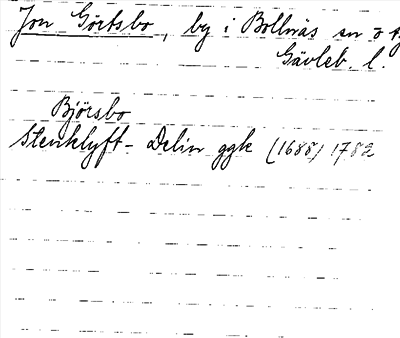 Jon Görtsbo, by i Bollnäs sn o
Gävleb. l.
Björsbo
Stenklyft - Delin ggk (1688) 1782